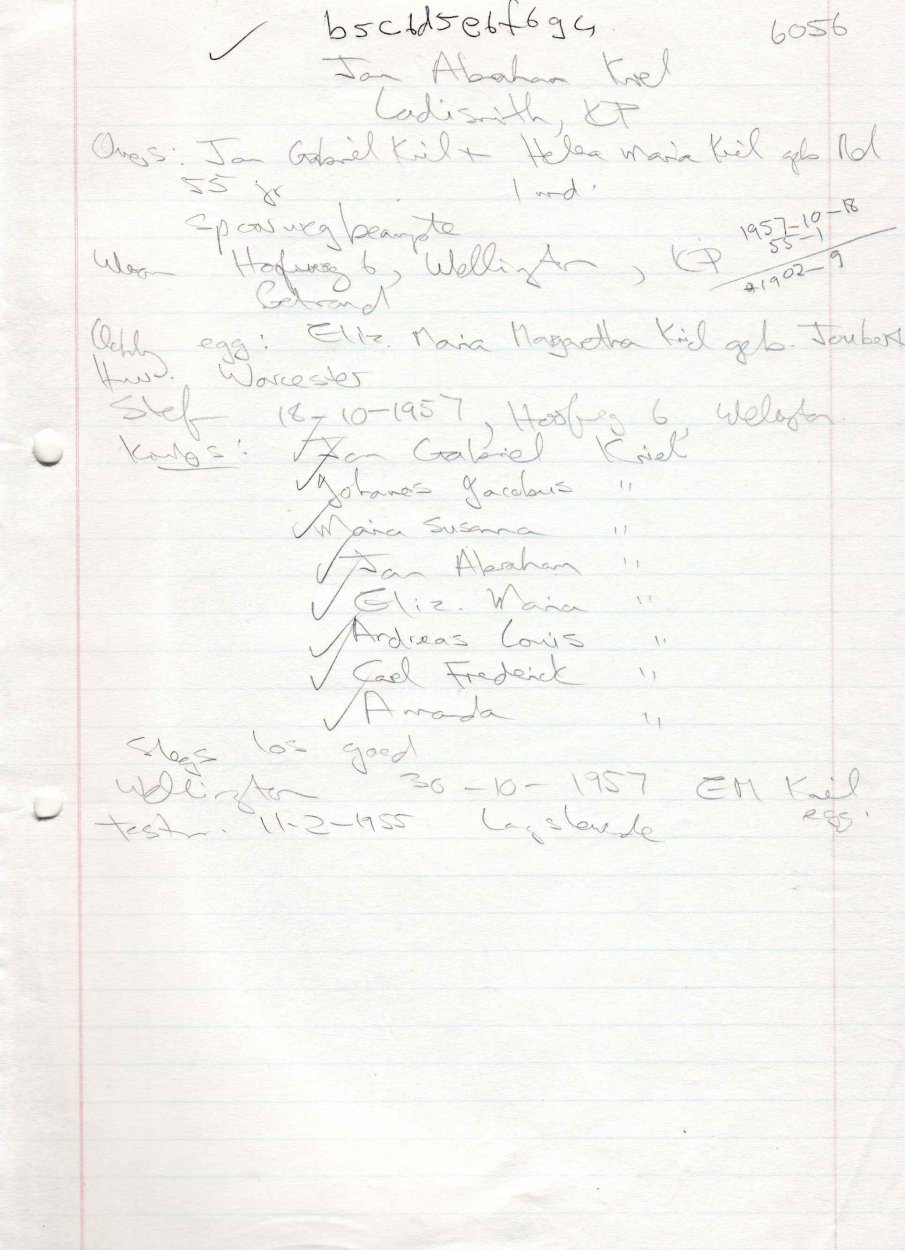 b5c6d5e6f6g4 6056
Jan Abraham Kriel
Ladismith, KP
Ouers: Jan Gabriel Kriel + Helena Maria Kriel geb. Nel
55 jr 1 md.
Spoorwegbeampte
Woon Hoofweg 6, Wellington, KP
1957-10-18
55-1
*1902-9
Getroud
egg: Eliz. Maria Margaretha Kriel geb. Joubert
Huw. Worcester
Sterf 18-10-1957, Hoofweg 6, Wellington.
Kinders: Jan Gabriel Kriel
Johannes Jacobus "
Maria Susanna "
Jan Abraham "
Eliz. Maria "
Andreas Louis "
Carel Frederick "
Amanda "
Slegs los goed
Wellington 30-10-1957 EM Kriel
egg.
testm. 11-2-1955 Langslewende